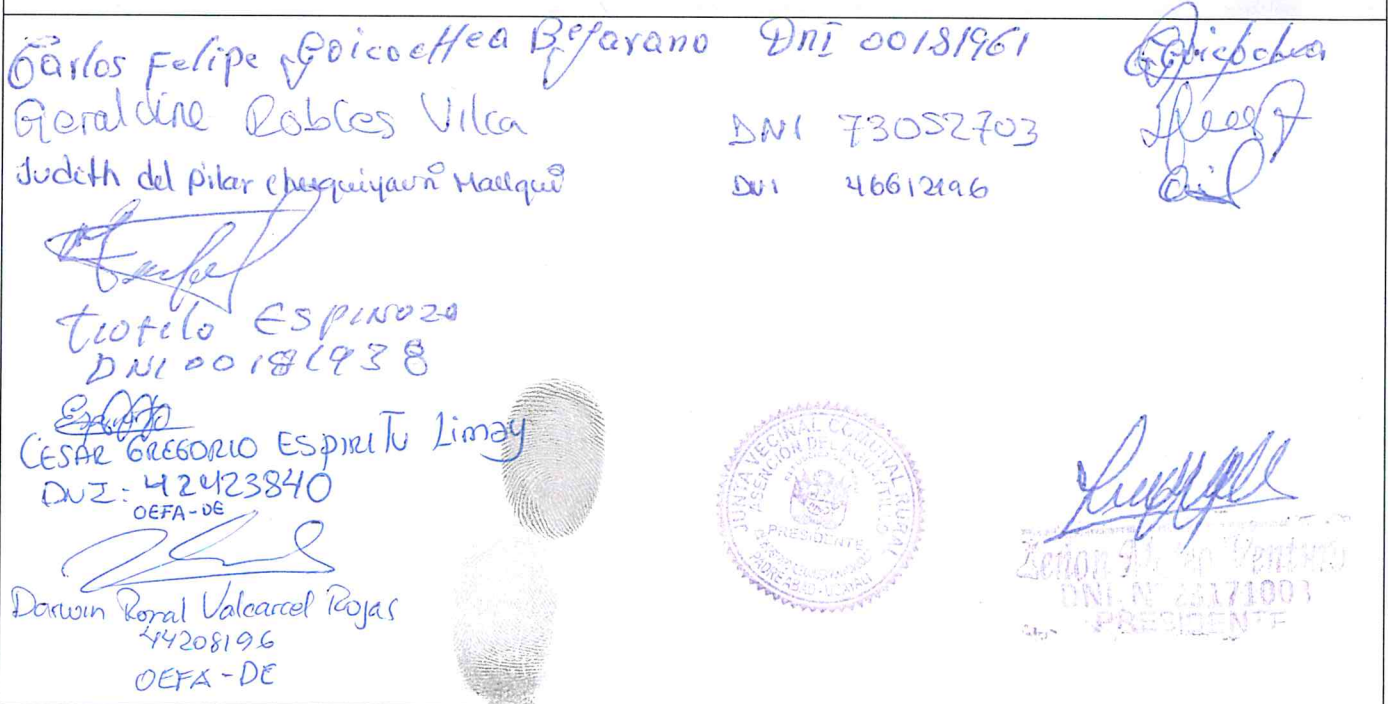 Carlos Felipe Goicochea Bejarano DNI 00181961
Geraldine Robles Vilca DNI 73052703
Judith del Pilar DNI
Teofilo ESPINOZA
DNI 00181938
CESAR GREGORIO ESPIRITU Limay
DNI: 42423840
OEFA-DE
Darwin Ronal Valcarcel Rojas
44208196
OEFA-DE
JUNTA VECINAL COMUNAL RURAL
PRESIDENTE
Zenon Ventura
DNI. N° 23171003
PRESIDENTE